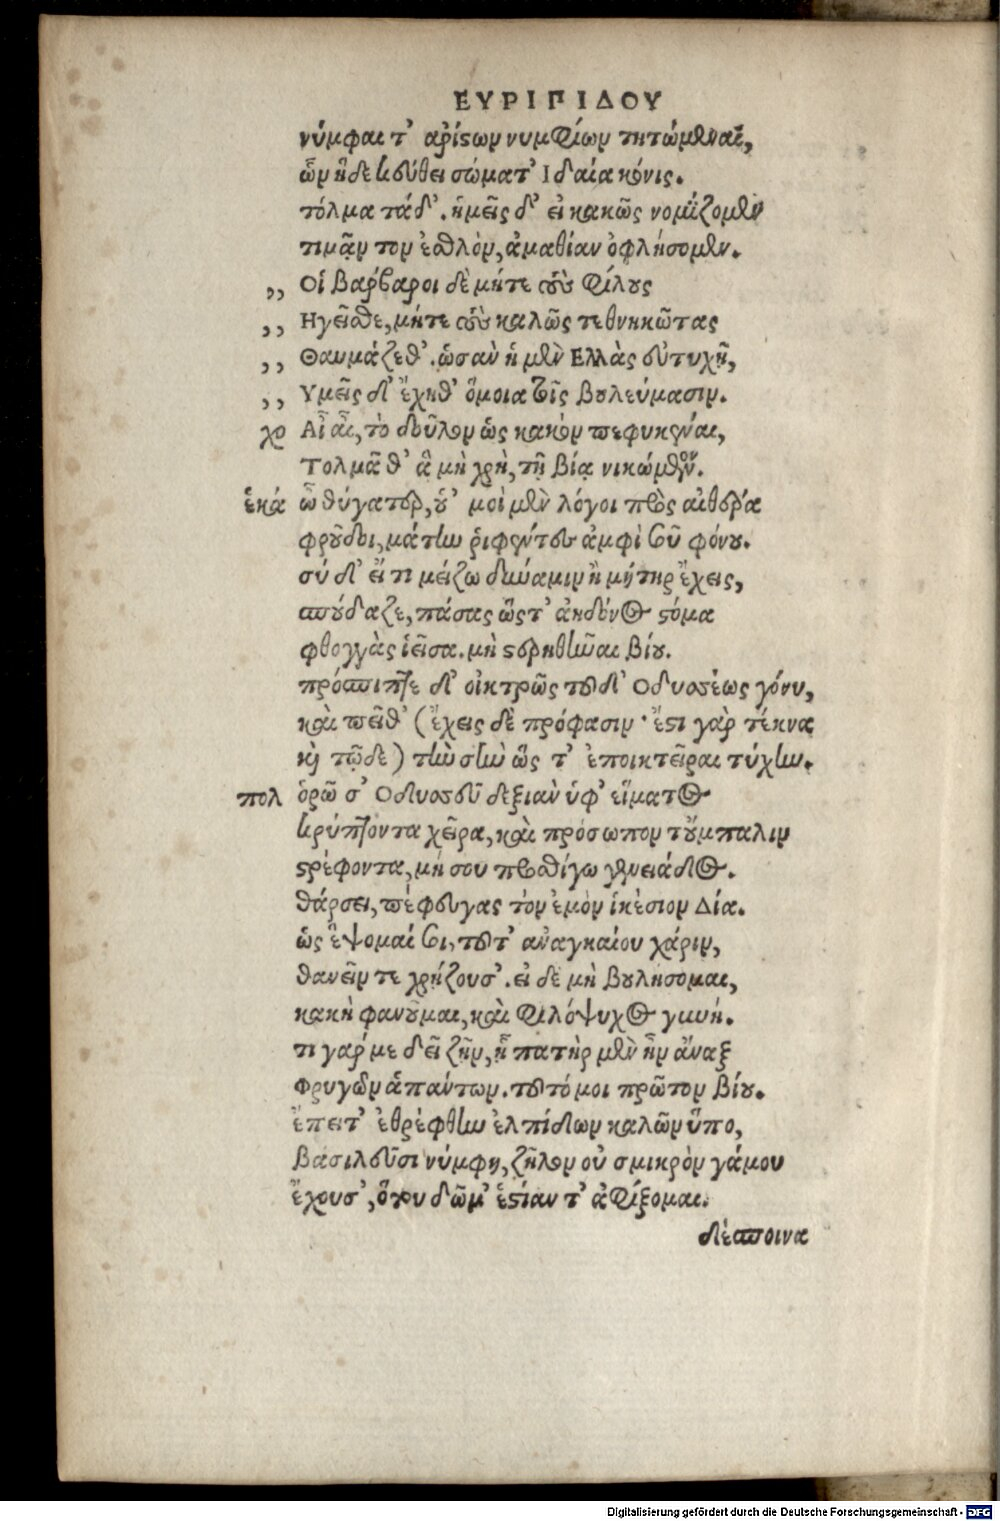 ΕΥΡΙΠΙΔΟΥ
νύμφαι τ' ἀρίστων νυμφίων τητώμεναι,
ὧν ἥδε κεύθει σώματ' Ιδαία κόνις.
τόλμα τάδ'. ἡμεῖς δ' εἰ κακῶς νομίζομεν
τιμᾷν τὸν ἐσθλὸν, ἀμαθίαν ὀφλήσομεν.
,, Οἱ βαρβαροι δὲ μήτε τοὺς φίλους
,, Ηγεῖσθε, μήτε τοὺς καλῶς τεθνηκῶτας
,, Θαυμάζεθ'. ὡσὰν ἡ μὲν Ελλὰς εὐτυχῇ,
,, Υμεῖς δ' ἔχηθ' ὅμοια τοῖς βουλεύμασιν.
χο Αἶ αἶ, τὸ δοῦλον ὡς κακὸν πεφυκέναι,
Τολμᾶ θ' ἃ μὴ χρὴ, τῇ βίᾳ νικώμενον.
ἑκά ὦ θύγατερ, οὑ' μοὶ μὲν λόγοι πρὸς αἰθέρα
φροῦδοι, μάτην ῥιφέντες ἀμφὶ σοῦ φόνου.
σύ δ' εἴ τι μείζω δύναμιν ἢ μήτηρ ἔχεις,
σπούδαζε, πάσας ὥστ' ἀηδόνος στόμα
φθογγὰς ἱεῖσα. μὴ στερηθῆναι βίου.
πρόσπιπτε δ' οἰκτρῶς τοῦδ' Οδυσσέως γόνυ,
καὶ πεῖθ' (ἔχεις δὲ πρόφασιν· ἔστι γὰρ τέκνα
καὶ τῷδε) τὴν σὴν ὥς τ' ἐποικτεῖραι τύχην.
πολ ὁρῶ σ' Οδυσσεῦ δεξιὰν ὑφ' εἵματος
κρύπτοντα χεῖρα, καὶ πρόσωπον τοὔμπαλιν
στρέφοντα, μή σου προσθίγω γενειάδος.
θάρσει, πέφευγας τὸν ἐμὸν ἱκέσιον Δία.
ὡς ἕψομαί σοι, τοῦ τ' αναγκαίου χάριν,
θανεῖν τε χρήζουσ'. εἰ δὲ μὴ βουλήσομαι,
κακὴ φανοῦμαι, καὶ φιλόψυχος γυνή.
τι γαρ με δεῖ ζῆν, ᾗ πατὴρ μὲν ἦν ἄναξ
Φρυγῶν ἁπάντων. τοῦτό μοι πρῶτον βίου.
ἔπειτ' ἐθρέφθην ἐλπίδων καλῶν ὕπο,
βασιλεῦσι νύμφη, ζῆλον οὐ σμικρὸν γάμου
ἔχουσ', ὅτου δῶμ' ἑστίαν τ' ἀφίξομαι.
δέσποινα
Digitalisierung gefördert durch die Deutsche Forschungsgemeinschaft - DFG